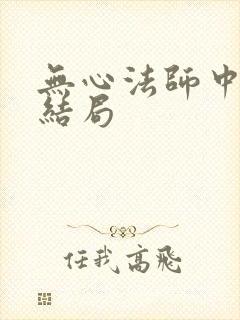 無心法師中
結局
任我高飛